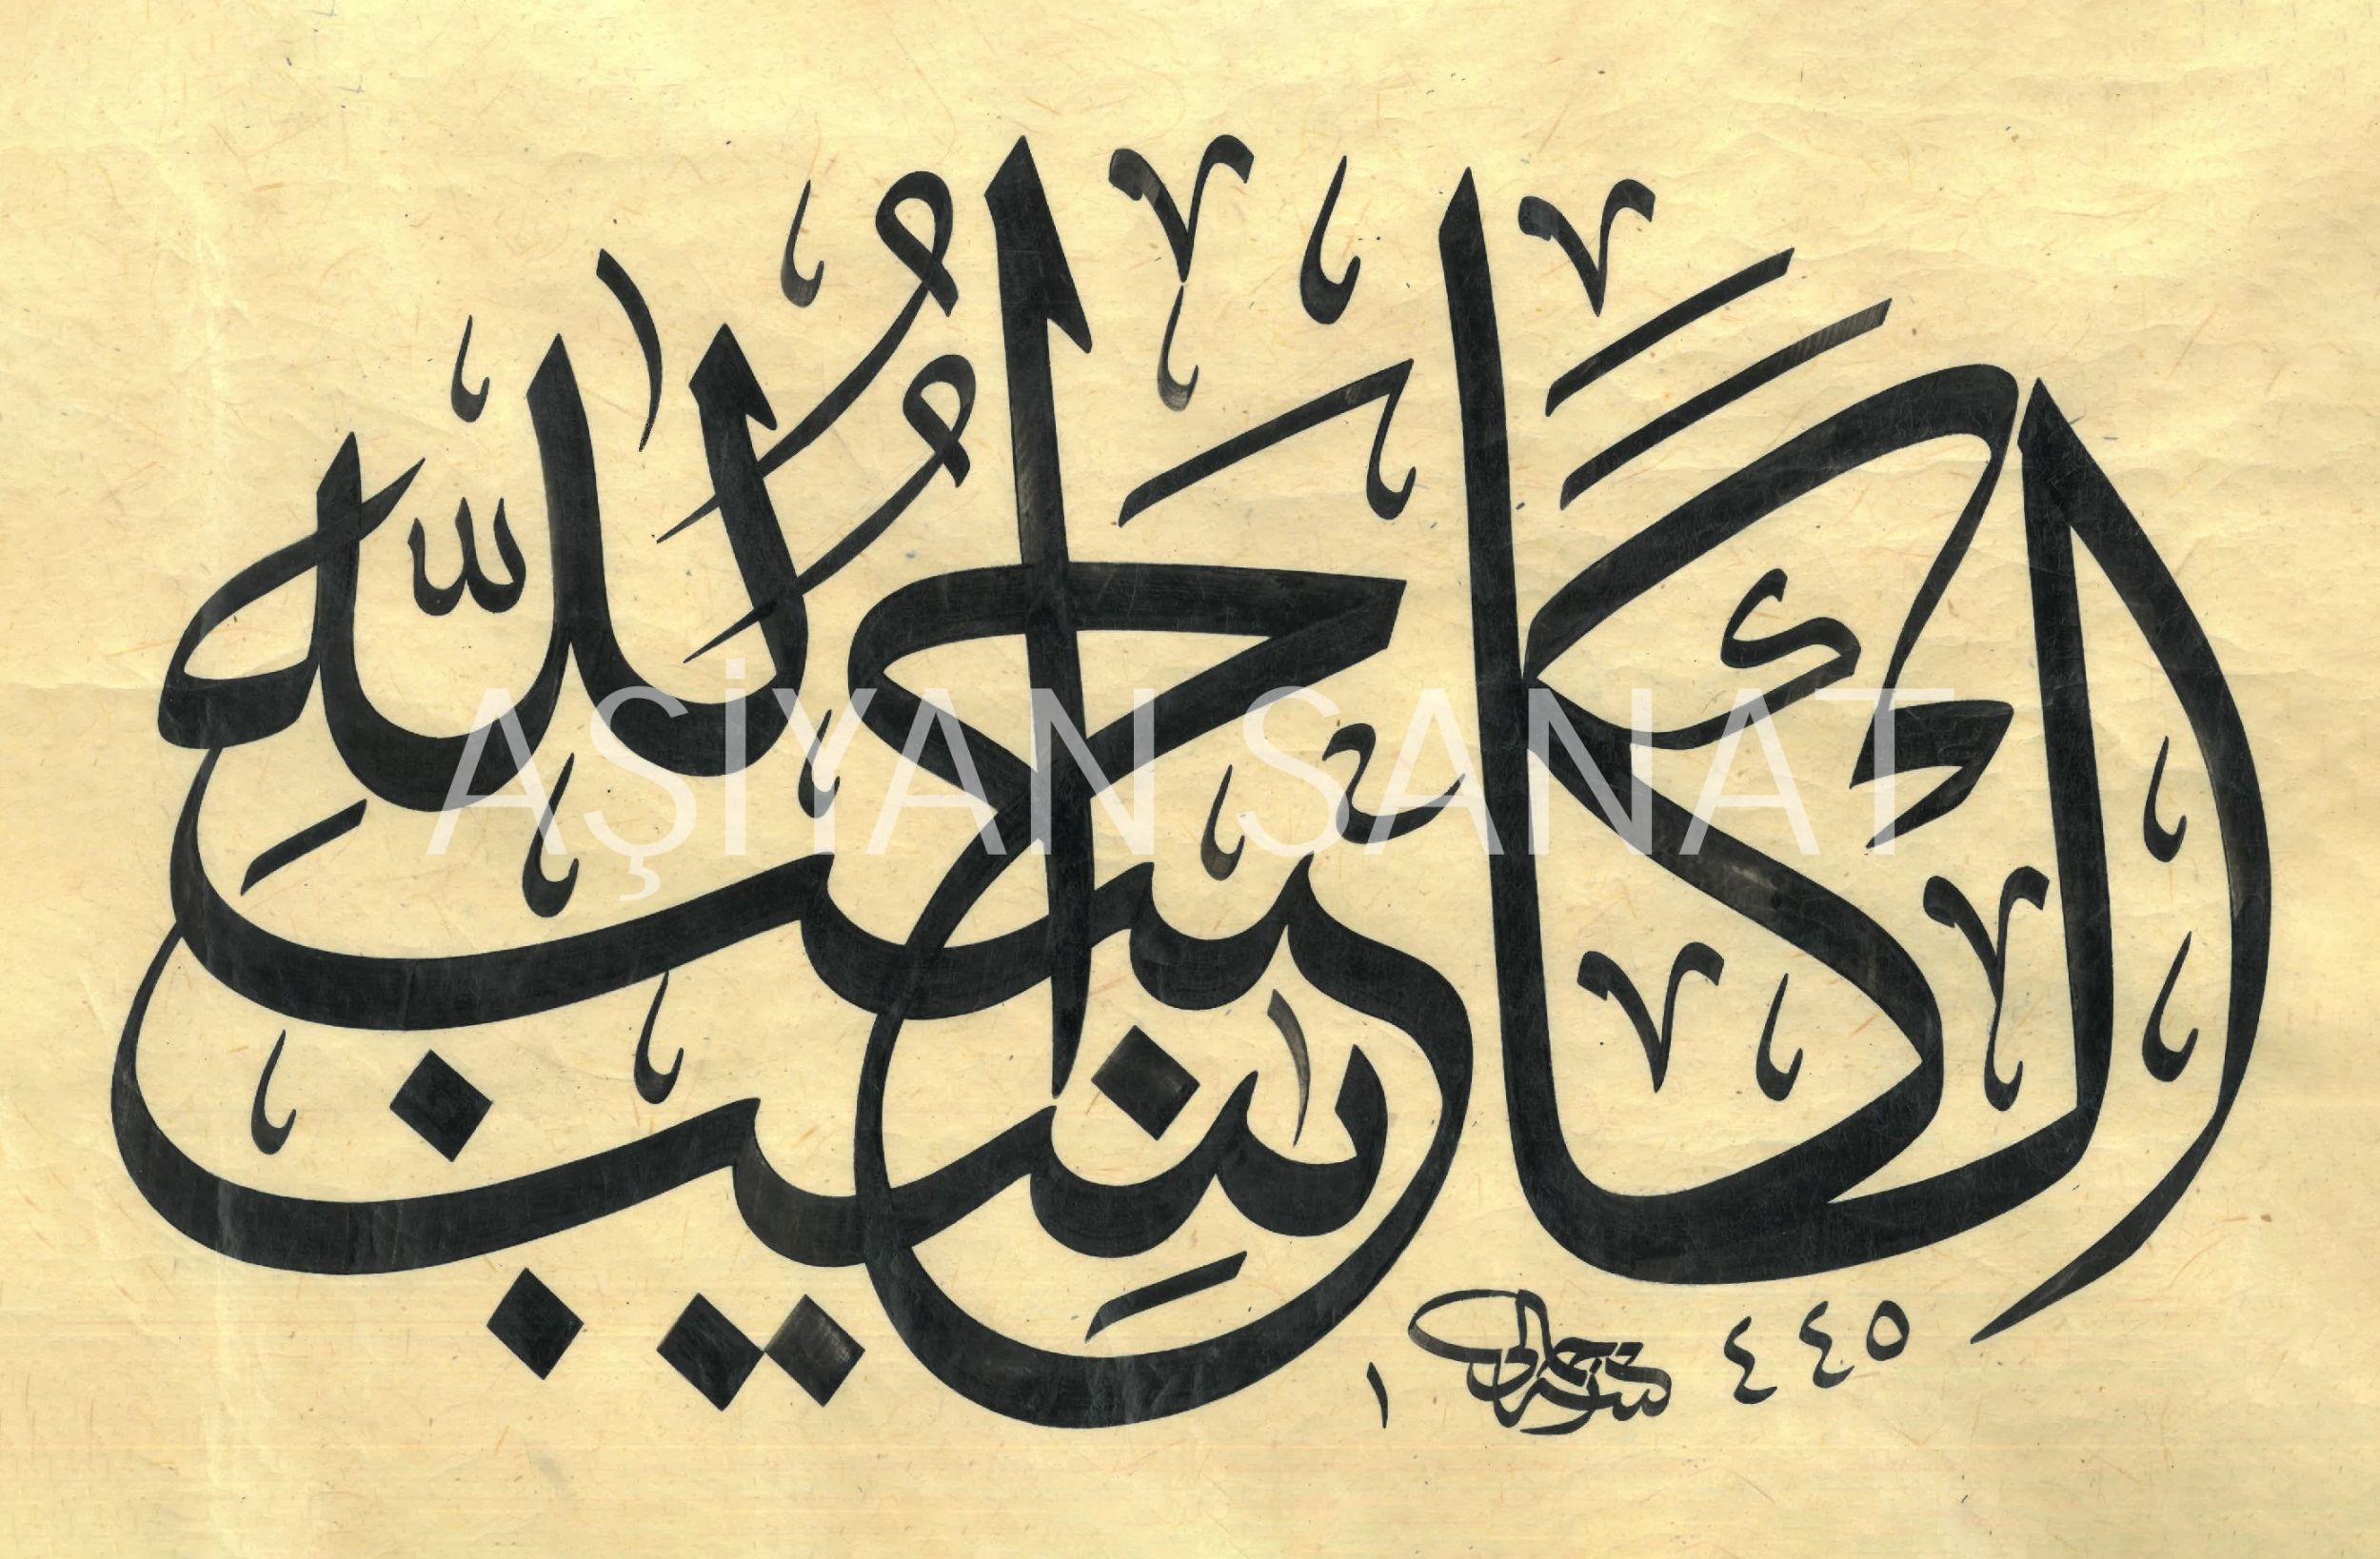 الكاسب حبيب الله
AŞİYAN SANAT
١٤٤٥